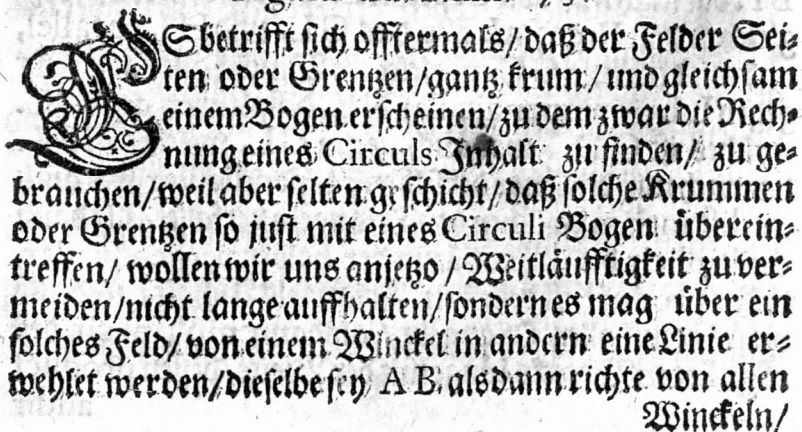 ES betrifft sich offtermals/ daß der Felder Sei⸗
ten oder Grentzen/ gantz krum/ und gleichsam
einem Bogen erscheinen/ zu dem zwar die Rech⸗
nung eines Circuls Inhalt zu finden/ zu ge⸗
brauchen/ weil aber selten geschicht/ daß solche Krummen
oder Grentzen so just mit eines Circuli Bogen überein⸗
treffen/ wollen wir uns anjetzo/ Weitläufftigkeit zu ver⸗
meiden/ nicht lange auffhalten/ sondern es mag über ein
solches Feld/ von einem Winckel in andern eine Linie er⸗
wehlet werden/ dieselbe sey A B. alsdann richte von allen
Winckeln/